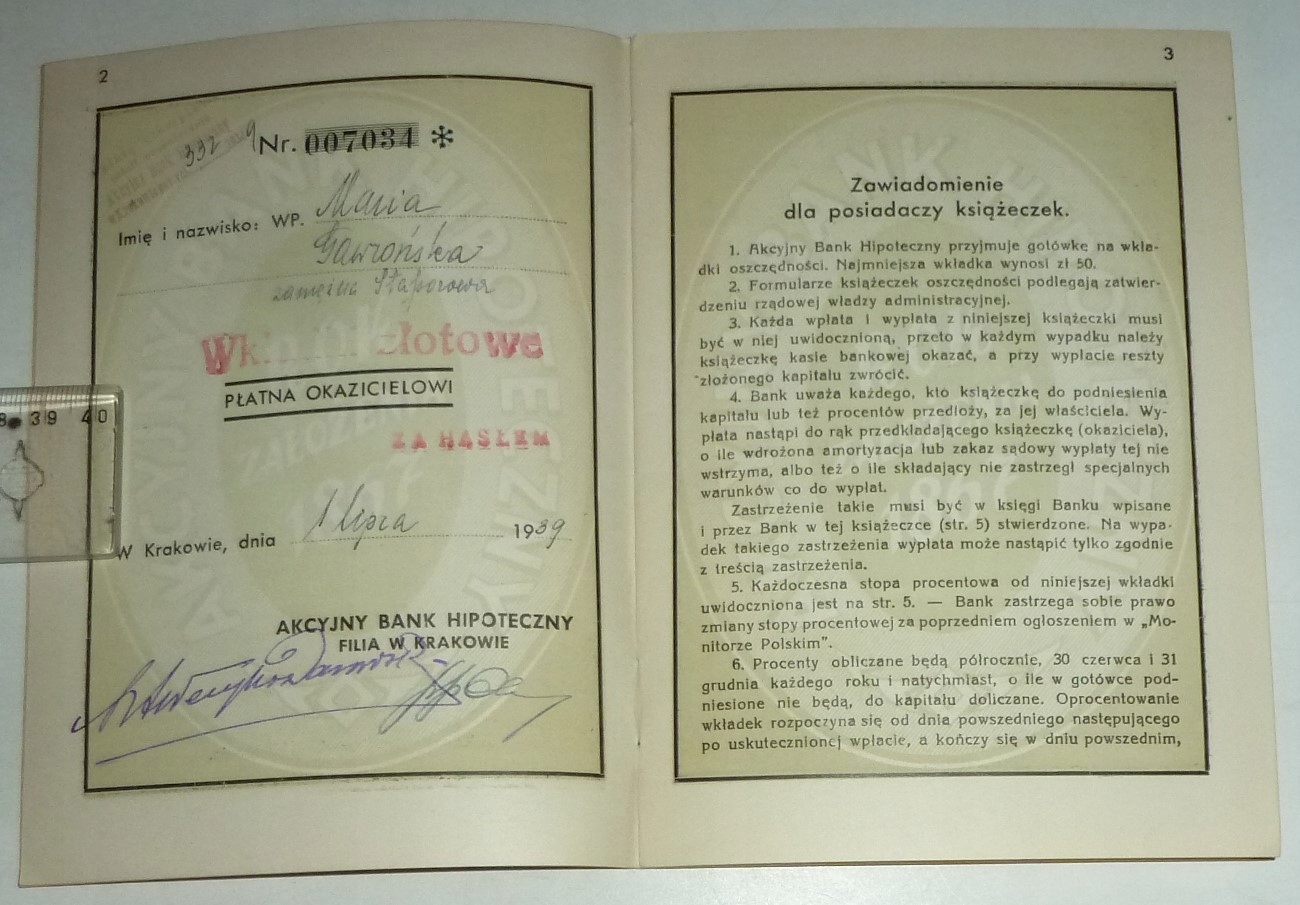 2
332 9
Nr. 007034 *
Imię i nazwisko: WP. Maria
Gawrońska
zamężna Stąporowa
Wk złotowe
PŁATNA OKAZICIELOWI
ZA HASŁEM
W Krakowie, dnia 1 lipca 1939
AKCYJNY BANK HIPOTECZNY
FILIA W KRAKOWIE
3
Zawiadomienie
dla posiadaczy książeczek.
1. Akcyjny Bank Hipoteczny przyjmuje gotówkę na wkła-
dki oszczędności. Najmniejsza wkładka wynosi zł 50.
2. Formularze książeczek oszczędności podlegają zatwier-
dzeniu rządowej władzy administracyjnej.
3. Każda wpłata i wypłata z niniejszej książeczki musi
być w niej uwidocznioną, przeto w każdym wypadku należy
książeczkę kasie bankowej okazać, a przy wypłacie reszty
złożonego kapitału zwrócić.
4. Bank uważa każdego, kto książeczkę do podniesienia
kapitału lub też procentów przedłoży, za jej właściciela. Wy-
płata nastąpi do rąk przedkładającego książeczkę (okaziciela),
o ile wdrożona amortyzacja lub zakaz sądowy wypłaty tej nie
wstrzyma, albo też o ile składający nie zastrzegł specjalnych
warunków co do wypłat.
Zastrzeżenie takie musi być w księgi Banku wpisane
i przez Bank w tej książeczce (str. 5) stwierdzone. Na wypa-
dek takiego zastrzeżenia wypłata może nastąpić tylko zgodnie
z treścią zastrzeżenia.
5. Każdoczesna stopa procentowa od niniejszej wkładki
uwidoczniona jest na str. 5. — Bank zastrzega sobie prawo
zmiany stopy procentowej za poprzedniem ogłoszeniem w „Mo-
nitorze Polskim".
6. Procenty obliczane będą półrocznie, 30 czerwca i 31
grudnia każdego roku i natychmiast, o ile w gotówce pod-
niesione nie będą, do kapitału doliczane. Oprocentowanie
wkładek rozpoczyna się od dnia powszedniego następującego
po uskutecznionej wpłacie, a kończy się w dniu powszednim,
38 39 40